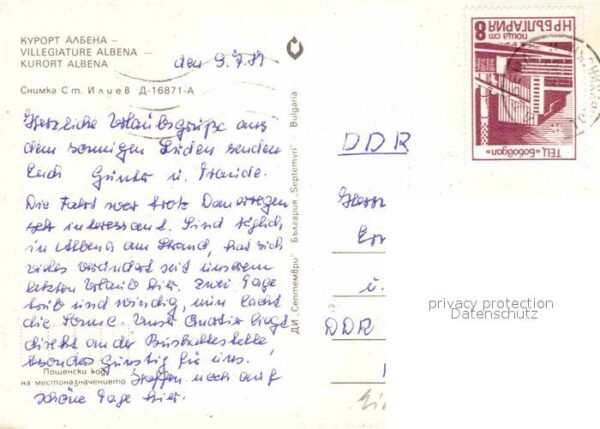 КУРОРТ АЛБЕНА –
VILLEGIATURE ALBENA —
KURORT ALBENA
den 9.7.81
Снимка Ст. Илиев Д-16871-А
Herzliche Urlaubsgrüße aus
dem sonnigen Süden senden
Euch Günter u. Traude.
Die Fahrt war trotz Dauerregen
sehr interessant. Sind täglich
in Albena am Strand, hat sich
vieles verändert seit unserem
letzten Urlaub hier. Zwei Tage
trüb und windig, nun lacht
die Sonne. Unser Quartier liegt
direkt an der Bushaltestelle,
besonders günstig für uns.
Hoffen noch auf
schöne Tage hier.
Пощенски код
на местоназначението
ДИ „Септември" България „Septemvri" Bulgaria
DDR
Herrn
u.
DDR
8
поща ст
НР БЪЛГАРИЯ
ТЕЦ „Бобовдол"
privacy protection
Datenschutz